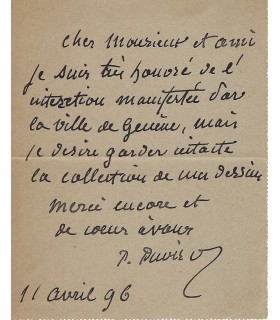 Cher Monsieur et ami
je suis très honoré de l'
intention manifestée par
la ville de Genève, mais
je desire garder intacte
la collection de mes dessins
Merci encore et
de coeur à vous
P. Puvis
11 avril 96